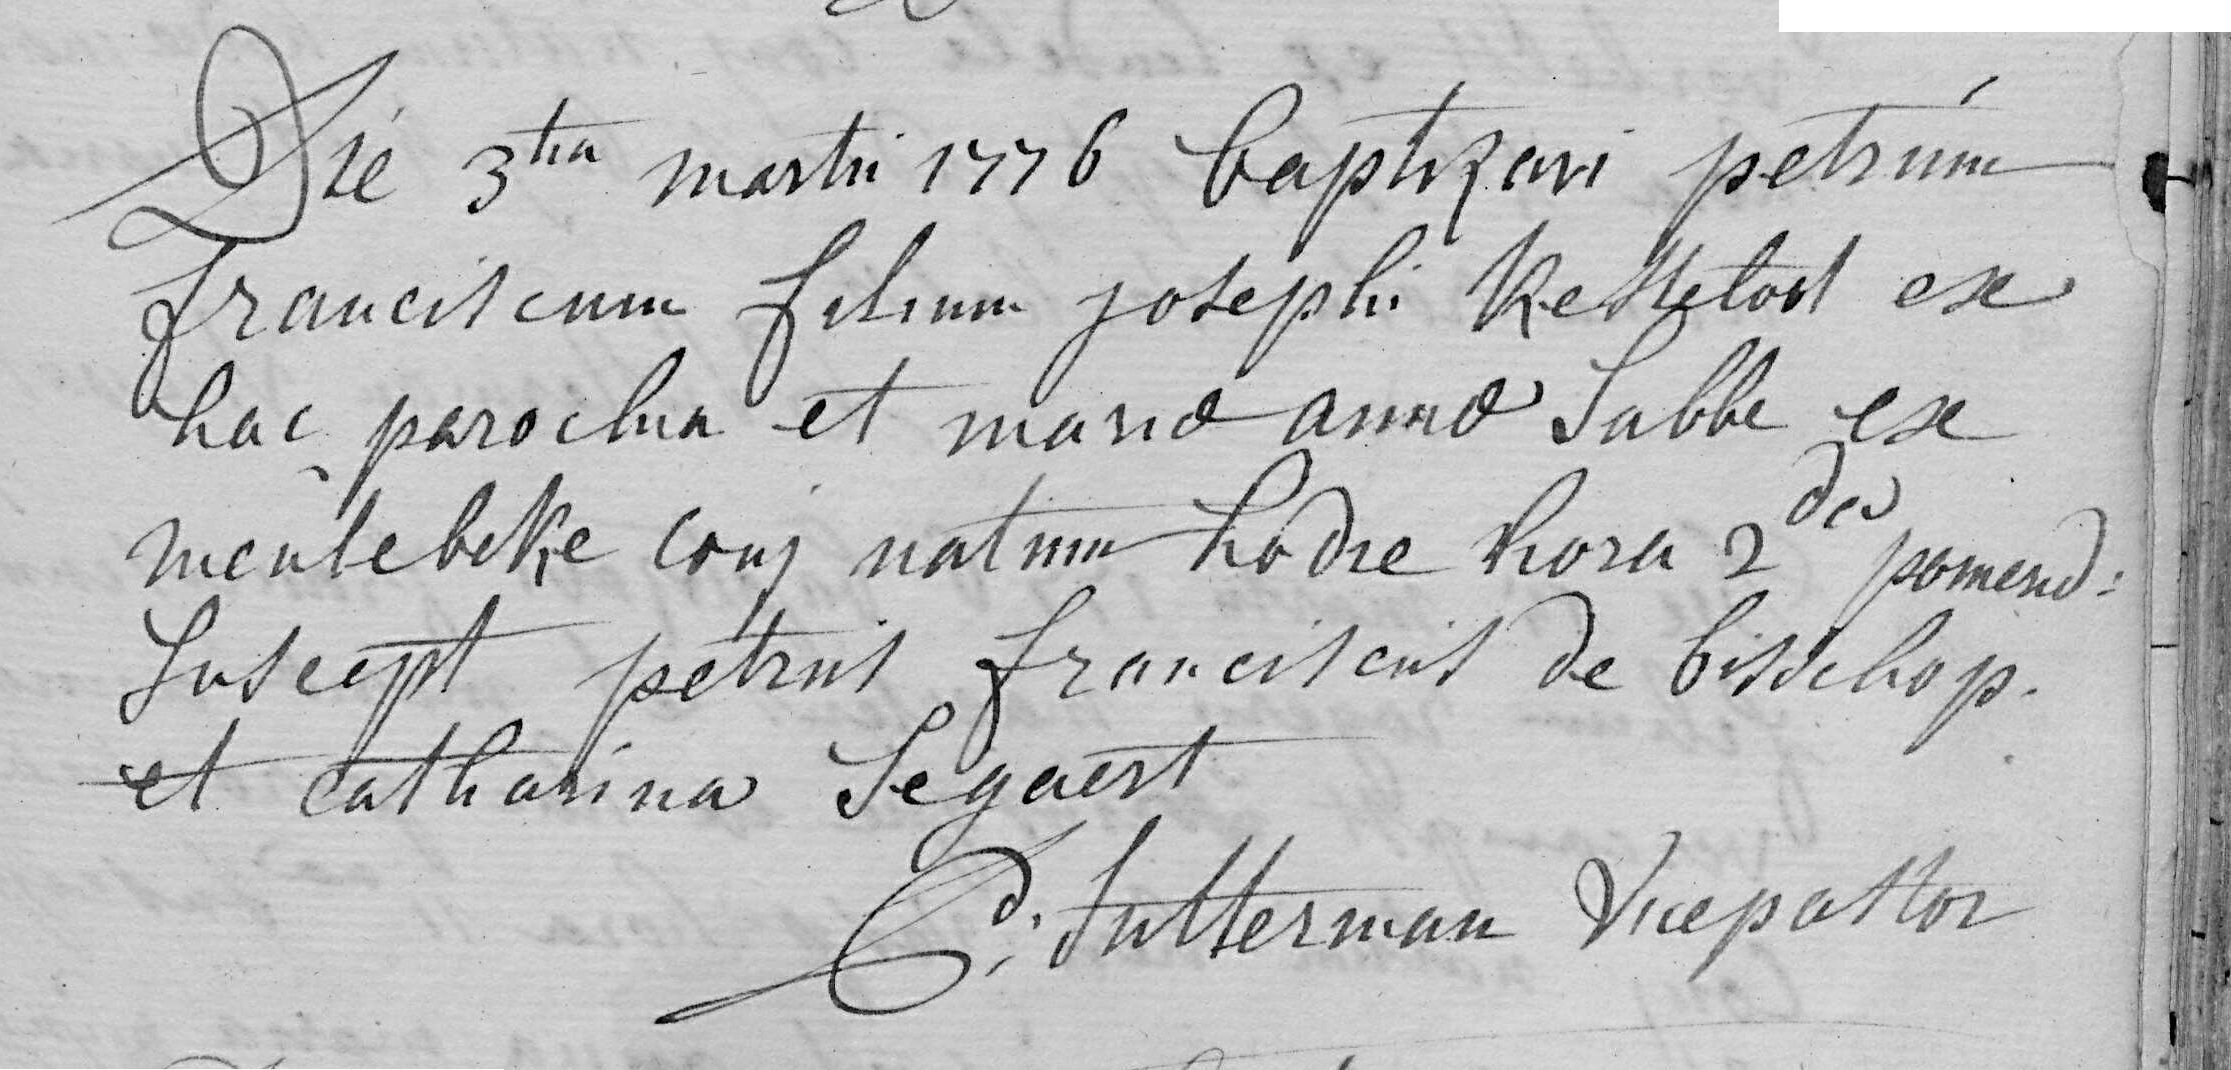 Die 3tia martii 1776 baptizavi petrum
franciscum filium josephi Kettelod ex
hac parochia et mariæ annæ Sabbe ex
meulebeke conj natum hodie hora 2da pomerid:
Suscept petrus franciscus de bisschop.
et catharina Segaert
Sutterman Vicepastor